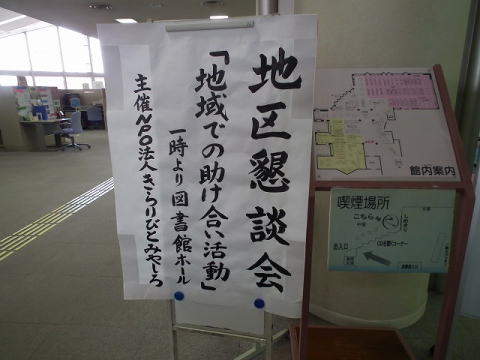 地区懇談会
「地域での助け合い活動」
一時より図書館ホール
主催NPO法人きらりびとみやしろ
館内案内
喫煙場所
こちら
出入口